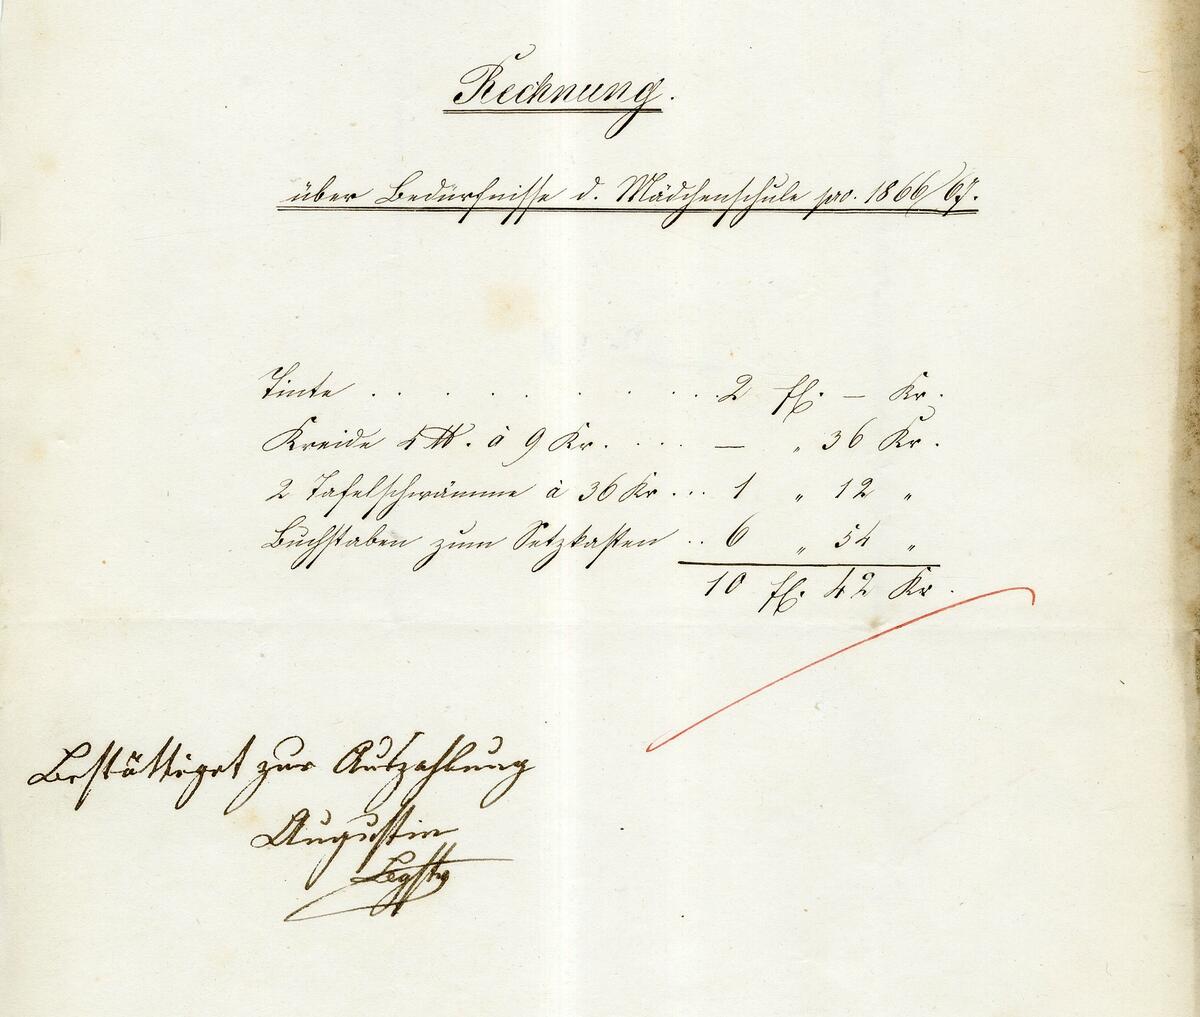 Rechnung.
über Bedürfnisse d. Mädchenschule pro. 1866/67.
Tinte . . . . . . . . . . 2 fl. — Kr.
Kreide 4 ℔. à 9 Kr. . . . . — „ 36 Kr.
2 Tafelschwämme à 36 Kr... 1 „ 12 „
Buchstaben zum Setzkasten .. 6 „ 54 „
10 fl. 42 Kr.
Bestättiget zur Auszahlung
Augustin